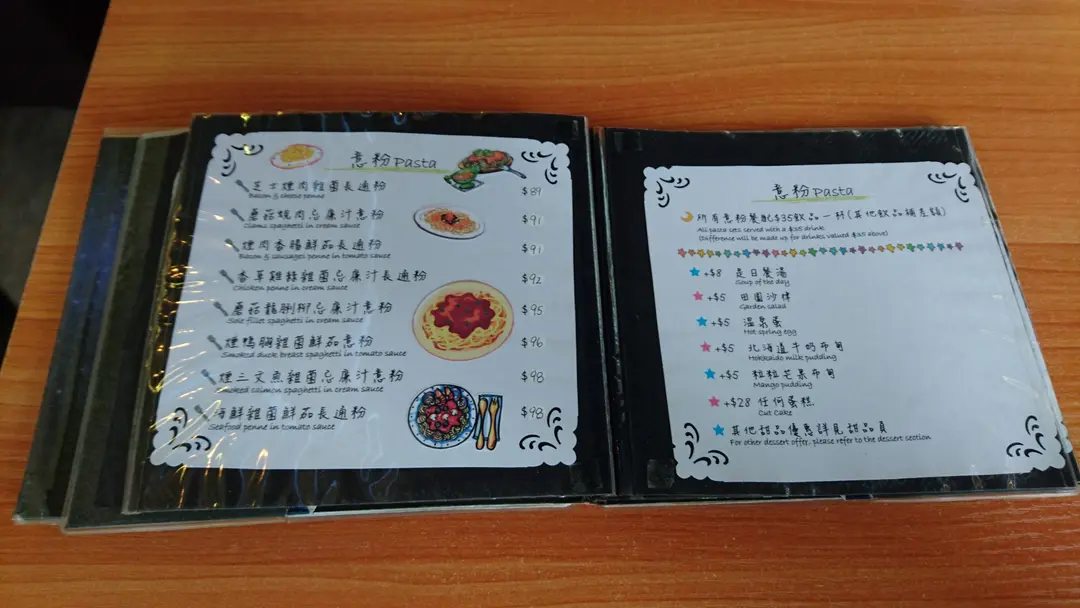 意粉 Pasta
芝士煙肉雞菌長通粉 $89
Bacon & cheese penne
蘑菇燒肉忌廉汁意粉 $91
Clams spaghetti in cream sauce
煙肉香腸鮮茄長通粉 $91
Bacon & sausages penne in tomato sauce
香草雞絲雞菌忌廉汁長通粉 $92
Chicken penne in cream sauce
蘑菇龍脷柳忌廉汁意粉 $95
Sole fillet spaghetti in cream sauce
煙鴨胸雞菌鮮茄意粉 $96
Smoked duck breast spaghetti in tomato sauce
煙三文魚雞菌忌廉汁意粉 $98
Smoked salmon spaghetti in cream sauce
海鮮雞菌鮮茄長通粉 $98
Seafood penne in tomato sauce
意粉 Pasta
所有意粉餐配$35飲品一杯(其他飲品補差額)
All pasta sets served with a $35 drink
(Difference will be made up for drinks valued $35 above)
+$8 是日餐湯
Soup of the day
+$5 田園沙律
Garden salad
+$5 溫泉蛋
Hot spring egg
+$5 北海道牛奶布甸
Hokkaido milk pudding
+$5 粒粒芒果布甸
Mango pudding
+$28 任何蛋糕
Cut Cake
其他甜品優惠詳見甜品頁
For other dessert offer, please refer to the dessert section